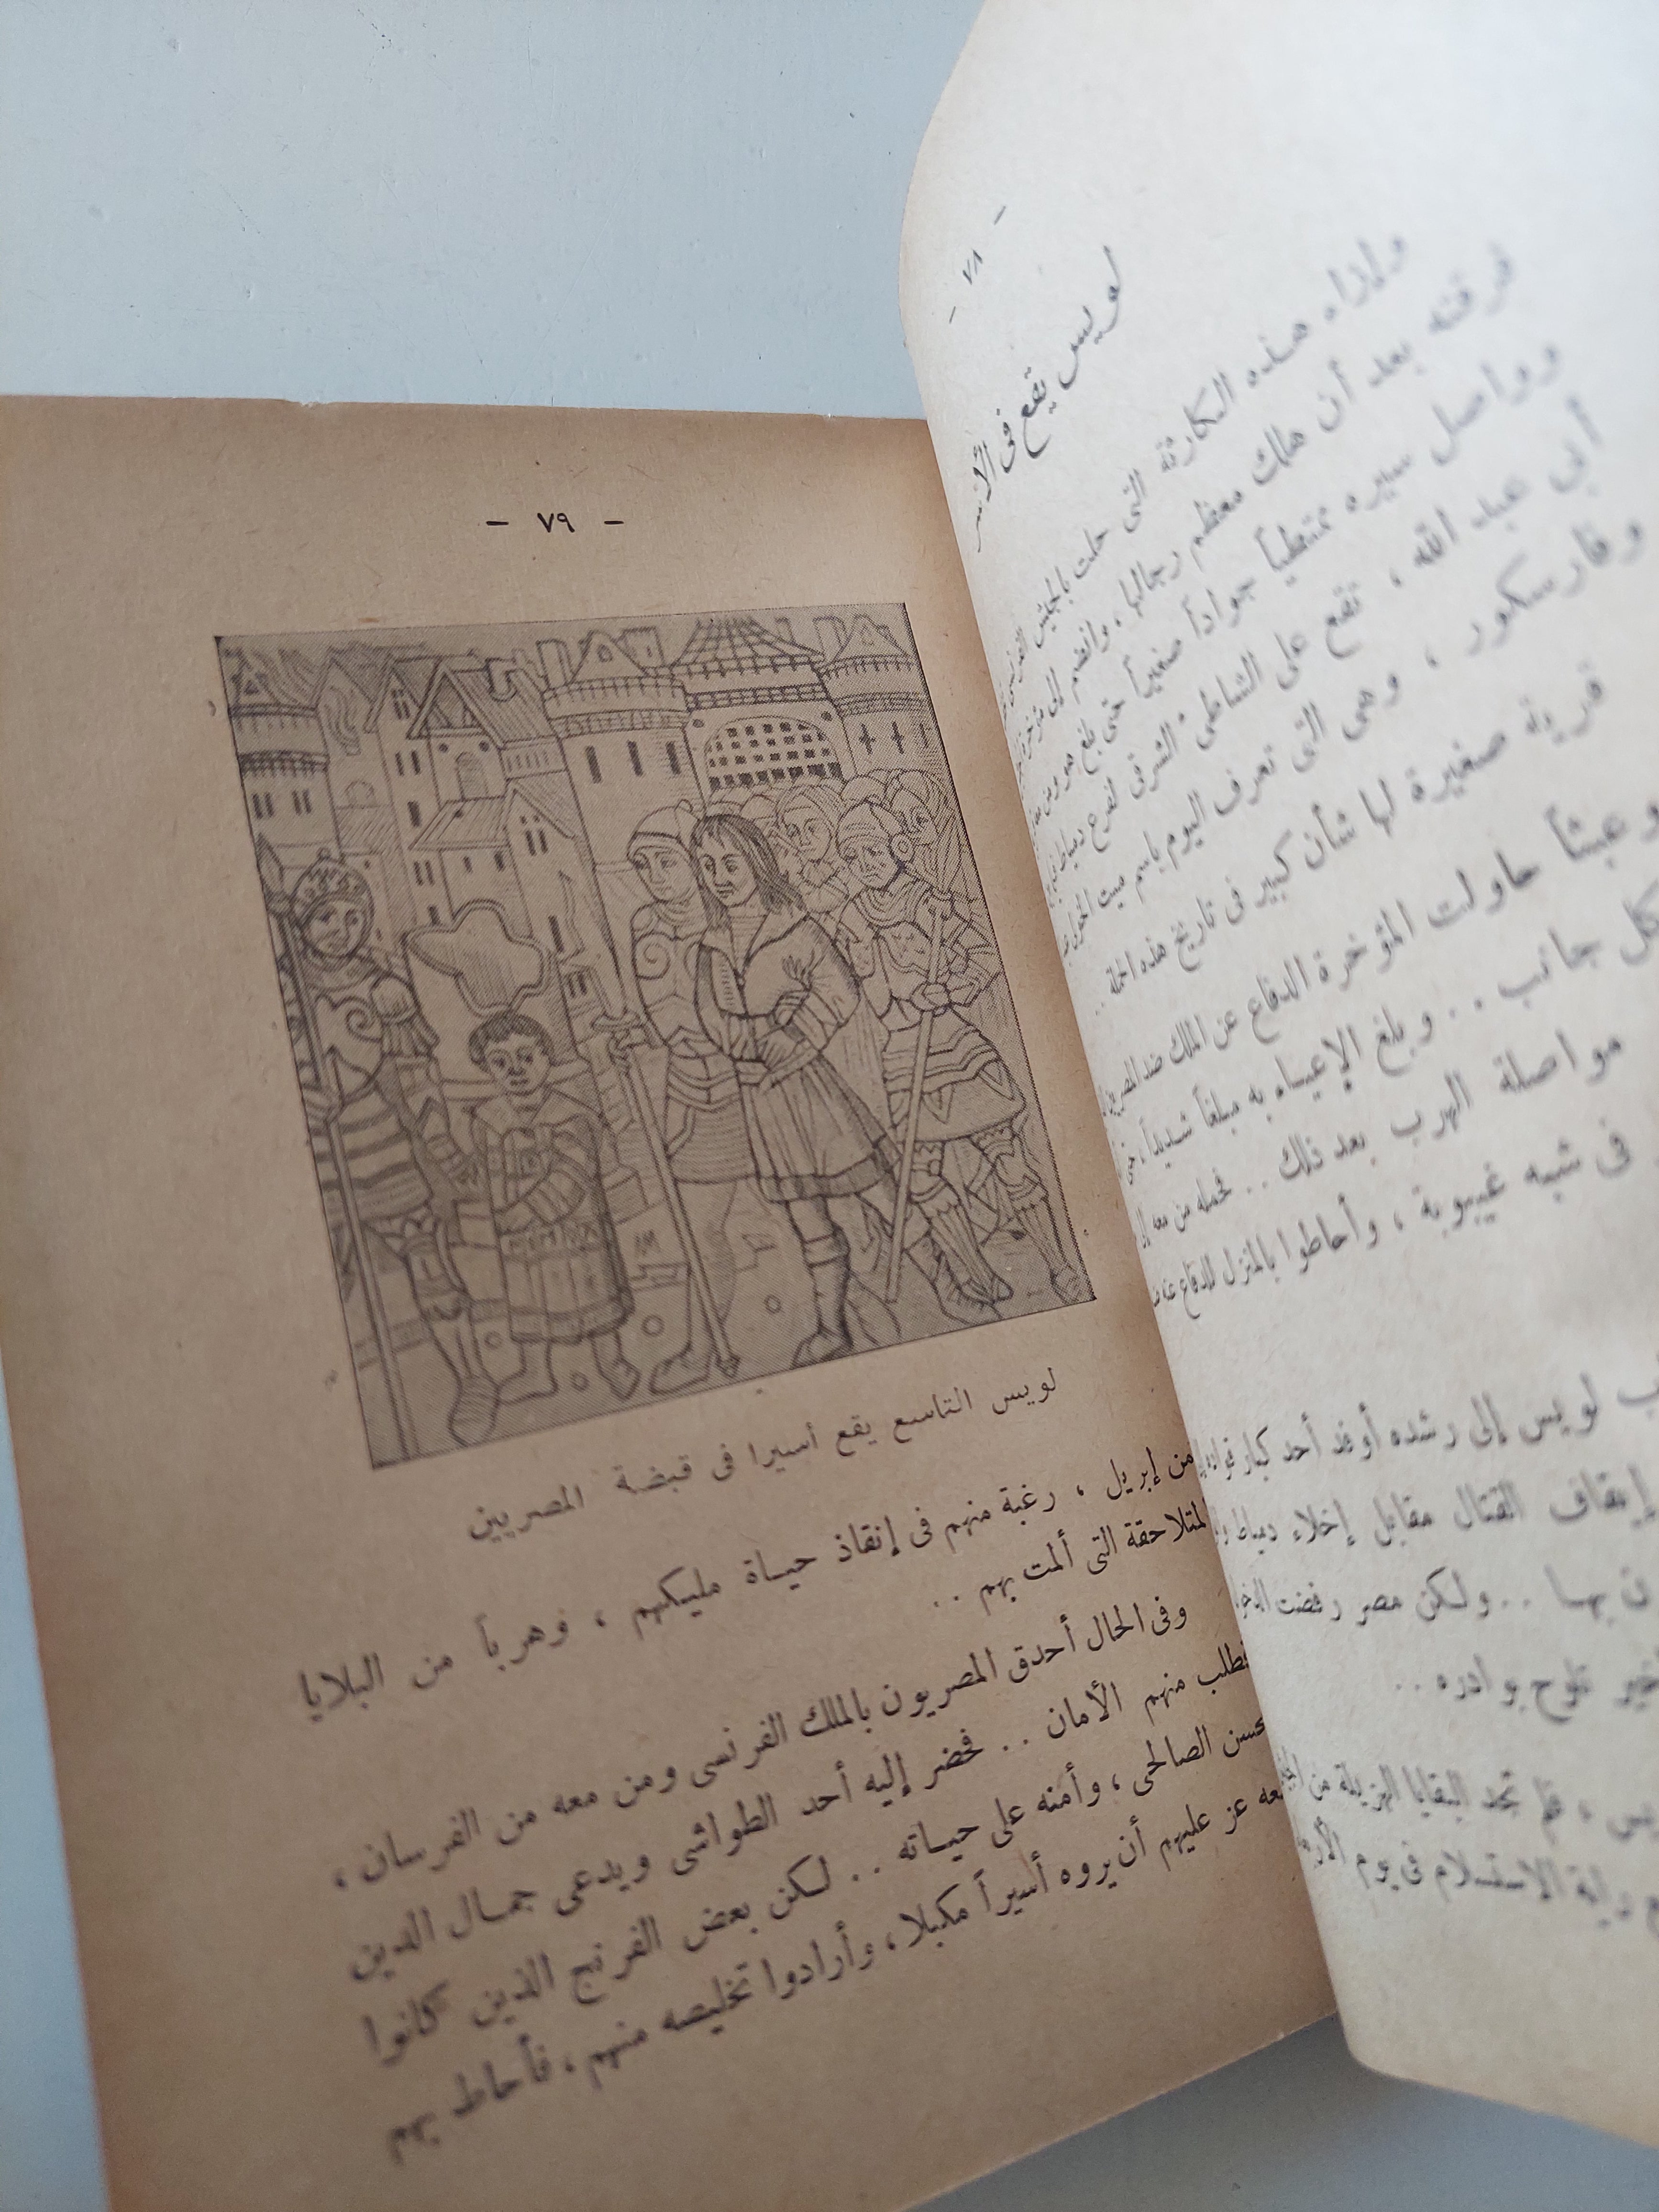 - ٧٨ -
لويس يقع فى الأسر
ولإزاء هذه الكارثة التى حلت بالجيش
فرقته بعد أن هلك معظم رجالها، وانضم إلى
وواصل سيره ممتطياً جواداً صغيراً حتى بلغ هو ومن
أبى عبد الله ، تقع على الشاطىء الشرقى لفرع دمياط
وفارسكور ، وهى التى تعرف اليوم باسم ميت الخولى
قرية صغيرة لها شأن كبير فى تاريخ هذه الحملة ..
وعبثاً حاولت المؤخرة الدفاع عن الملك ضد المصريين
كل جانب .. وبلغ الإعياء به مبلغاً شديداً ، حتى
مواصلة الهرب بعد ذلك .. فحمله من معه إلى
فى شبه غيبوبة ، وأحاطوا بالمنزل للدفاع عنه
لويس إلى رشده أوفد أحد كبار قواده
إيقاف القتال مقابل إخلاء دمياط
بها .. ولكن مصر رفضت
تلوح بوادره ..
، فلم تجد البقايا الهزيلة من
راية الاستسلام فى يوم
- ٧٩ -
لويس التاسع يقع أسيرا فى قبضة المصريين
من إبريل ، رغبة منهم فى إنقاذ حياة مليكهم ، وهرباً من البلايا
المتلاحقة التى ألمت بهم ..
وفى الحال أحدق المصريون بالملك الفرنسى ومن معه من الفرسان ،
فطلب منهم الأمان .. فحضر إليه أحد الطواشى ويدعى جمال الدين
محسن الصالحى ، وأمنه على حياته .. لكن بعض الفرنج الذين كانوا
معه عز عليهم أن يروه أسيراً مكبلا ، وأرادوا تخليصه منهم ، فأحاط بهم